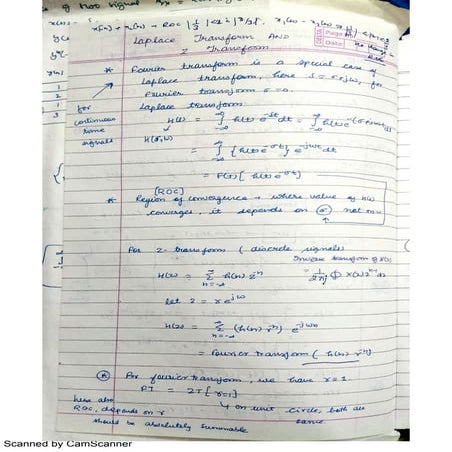 x[n] + x(n) → ROC
Laplace Transform AND
Z Transform
Page
Date
* Fourier transform is a special case of
Laplace transform, here s = σ+jω, for
Fourier transform σ=0.
for continuous time signals
Laplace transform
H(s) = ∫ h(t) e^-st dt = ∫ h(t) e^-(σ+jω)t dt
H(σ,ω)
= ∫ {h(t) e^-σt} e^-jωt dt
= F(T) [ h(t) e^-σt ]
[ROC]
* Region of convergence → where value of H(s)
converges, it depends on σ not ω
For Z-transform ( discrete signals)
Inverse transform of X(z)
H(z) = Σ h(n) z^-n
n=-∞
= 1/2πj ∮ X(z) z^n-1 dz
let z = r e^jω
H(z) = Σ (h(n) r^-n) e^-jωn
n=-∞
= Fourier transform ( h(n) r^-n )
* For fourier transform, we have r=1.
FT = ZT [r=1]
↳ on unit circle, both are
same.
here also
ROC, depends on r
should be absolutely summable
Scanned by CamScanner